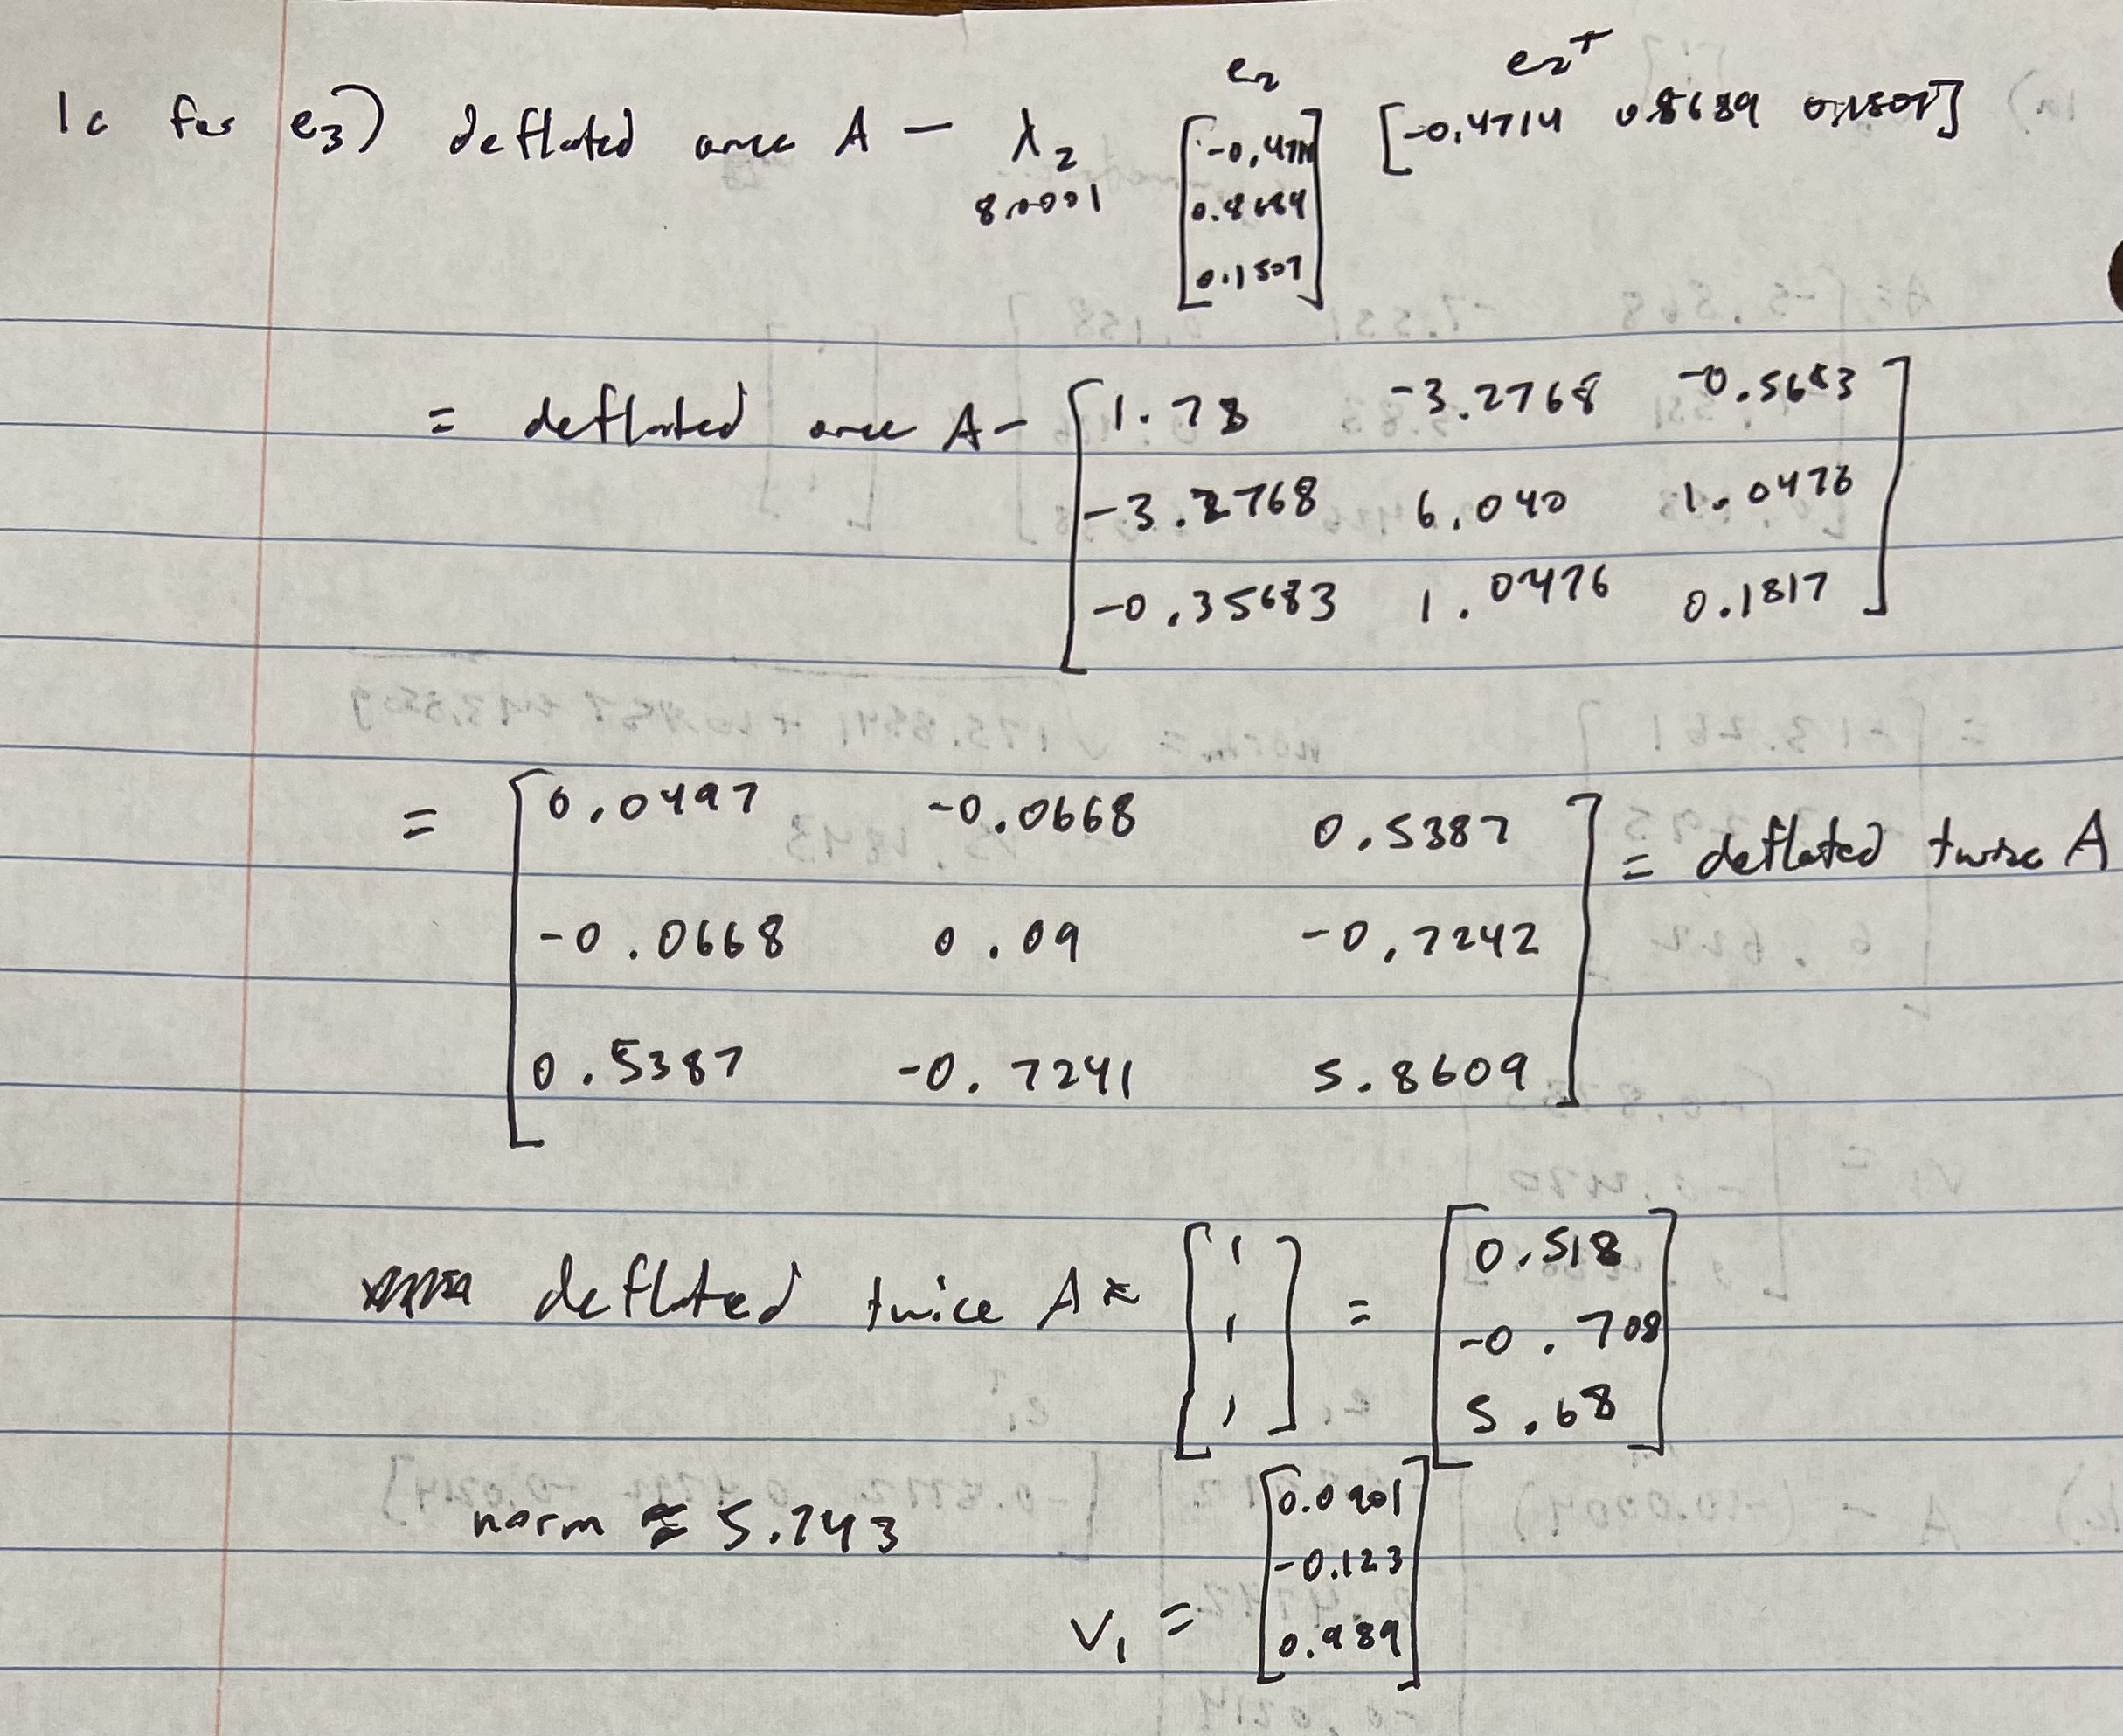 e2 e2^T
1c for e3) deflated once A - λ2 [-0.4714 0.8689 0.1507] [-0.4714 0.8689 0.1507]
8.0001
= deflated once A - [1.78 -3.2768 -0.5683
-3.2768 6.040 1.0476
-0.35683 1.0476 0.1817]
= [0.0497 -0.0668 0.5387
-0.0668 0.09 -0.7242
0.5387 -0.7241 5.8609] = deflated twice A
deflated twice A * [1 1 1] = [0.518 -0.708 5.68]
norm ≈ 5.743
V1 = [0.0901 -0.123 0.989]